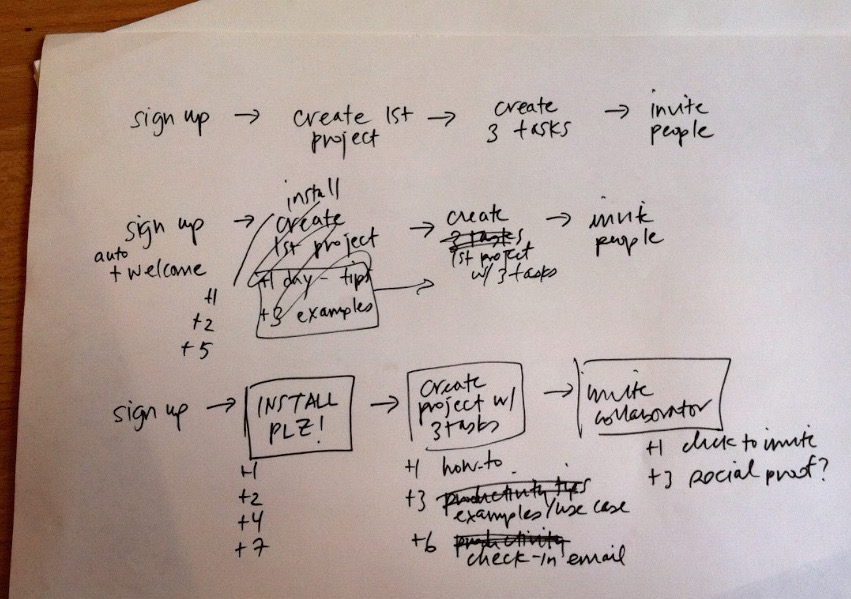 sign up → create 1st → create → invite
project 3 tasks people
install
sign up → create → create → invite
auto 1st project 3 tasks people
+ welcome 1st project
+1 day - tips w/ 3 tasks
+1 +3 examples
+2
+5
sign up → INSTALL → create → invite
PLZ! project w/ collaborator
3 tasks
+1 +1 how-to +1 click to invite
+2 +3 productivity tips +3 social proof?
+4 examples/use case
+7 +6 productivity
check-in email